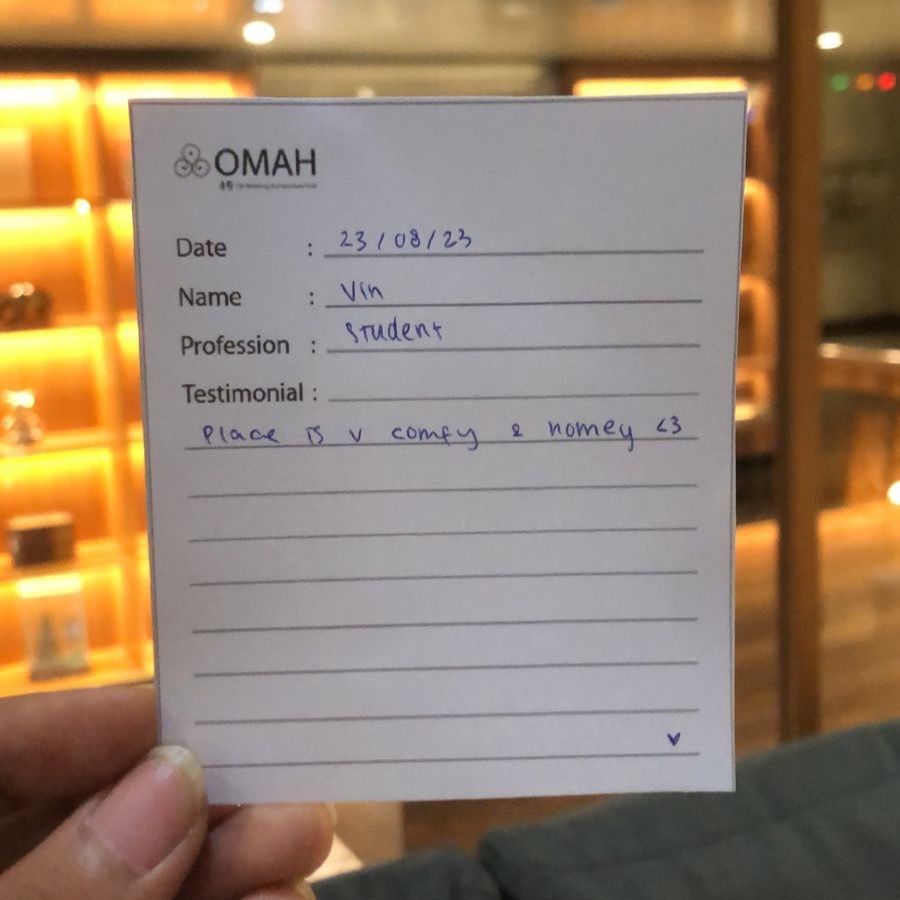 OMAH
Date : 23/08/23
Name : Vin
Profession : Student
Testimonial :
Place is v comfy & homey <3